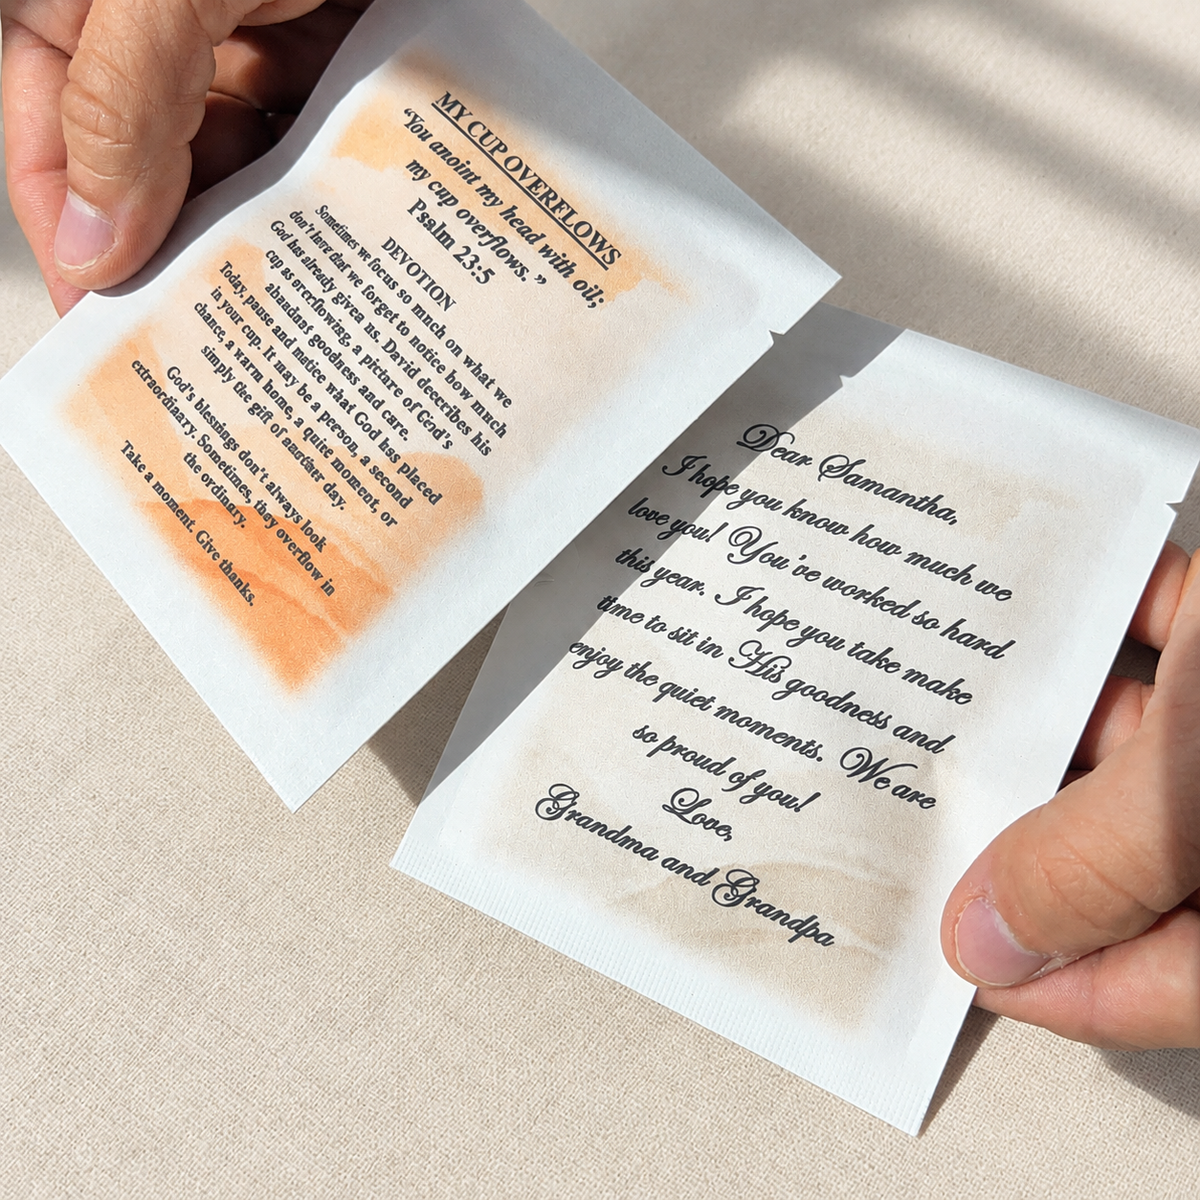 MY CUP OVERFLOWS
“You anoint my head with oil;
my cup overflows.”
Psalm 23:5
DEVOTION
Sometimes we focus so mnch on what we
don't have that we forget to notice how much
God has already given us. David describes his
cup as overflowing, a picture of God's
abundant goodness and care.
Today, pause and notice what God has placed
in your cup. It may be a person, a second
chance, a warm home, a quiet moment, or
simply the gift of another day.
God's blessings don't always look
extraordinary. Sometimes, they overflow in
the ordinary.
Take a moment. Give thanks.
Dear Samantha,
I hope you know how much we
love you! You've worked so hard
this year. I hope you take make
time to sit in His goodness and
enjoy the quiet moments. We are
so proud of you!
Love,
Grandma and Grandpa